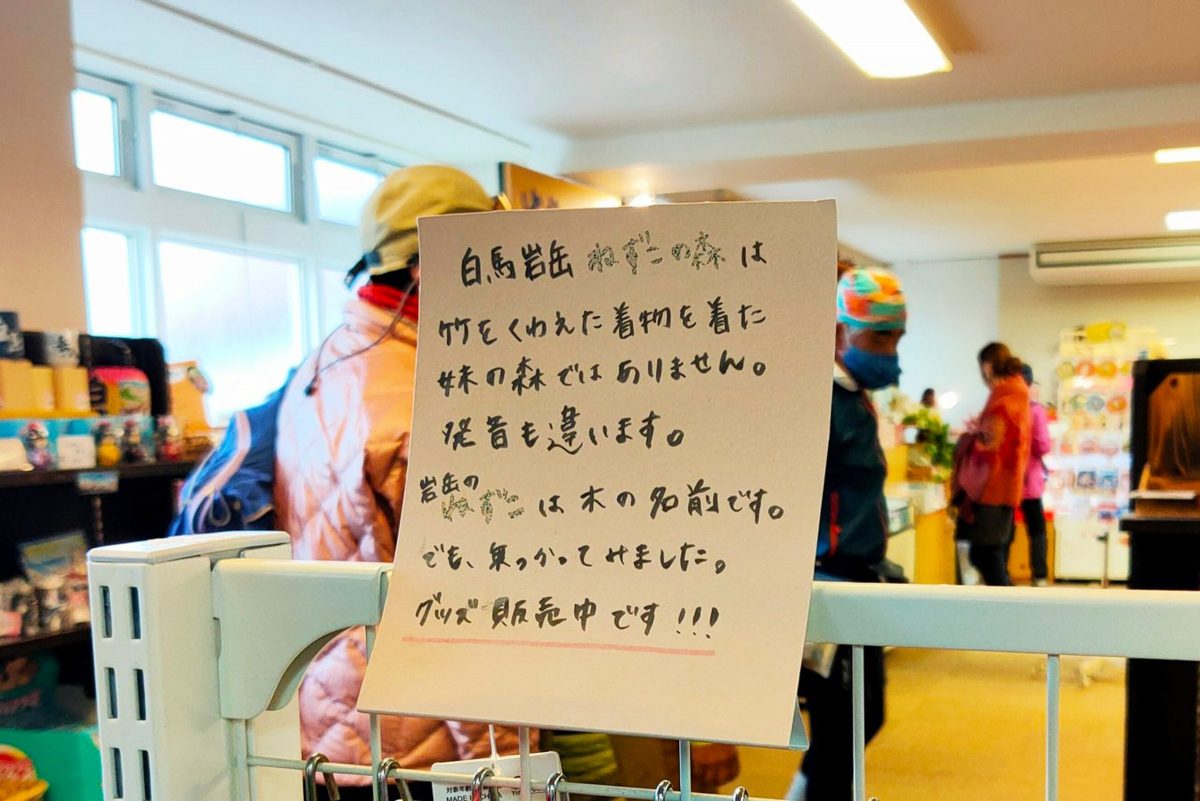 白馬岩岳 ねずこの森 は
竹をくわえた着物を着た
妹の森ではありません。
発音も違います。
岩岳の
ねずこ は木の名前です。
でも、乗っかってみました。
グッズ販売中です!!!
対象年齢
MADE